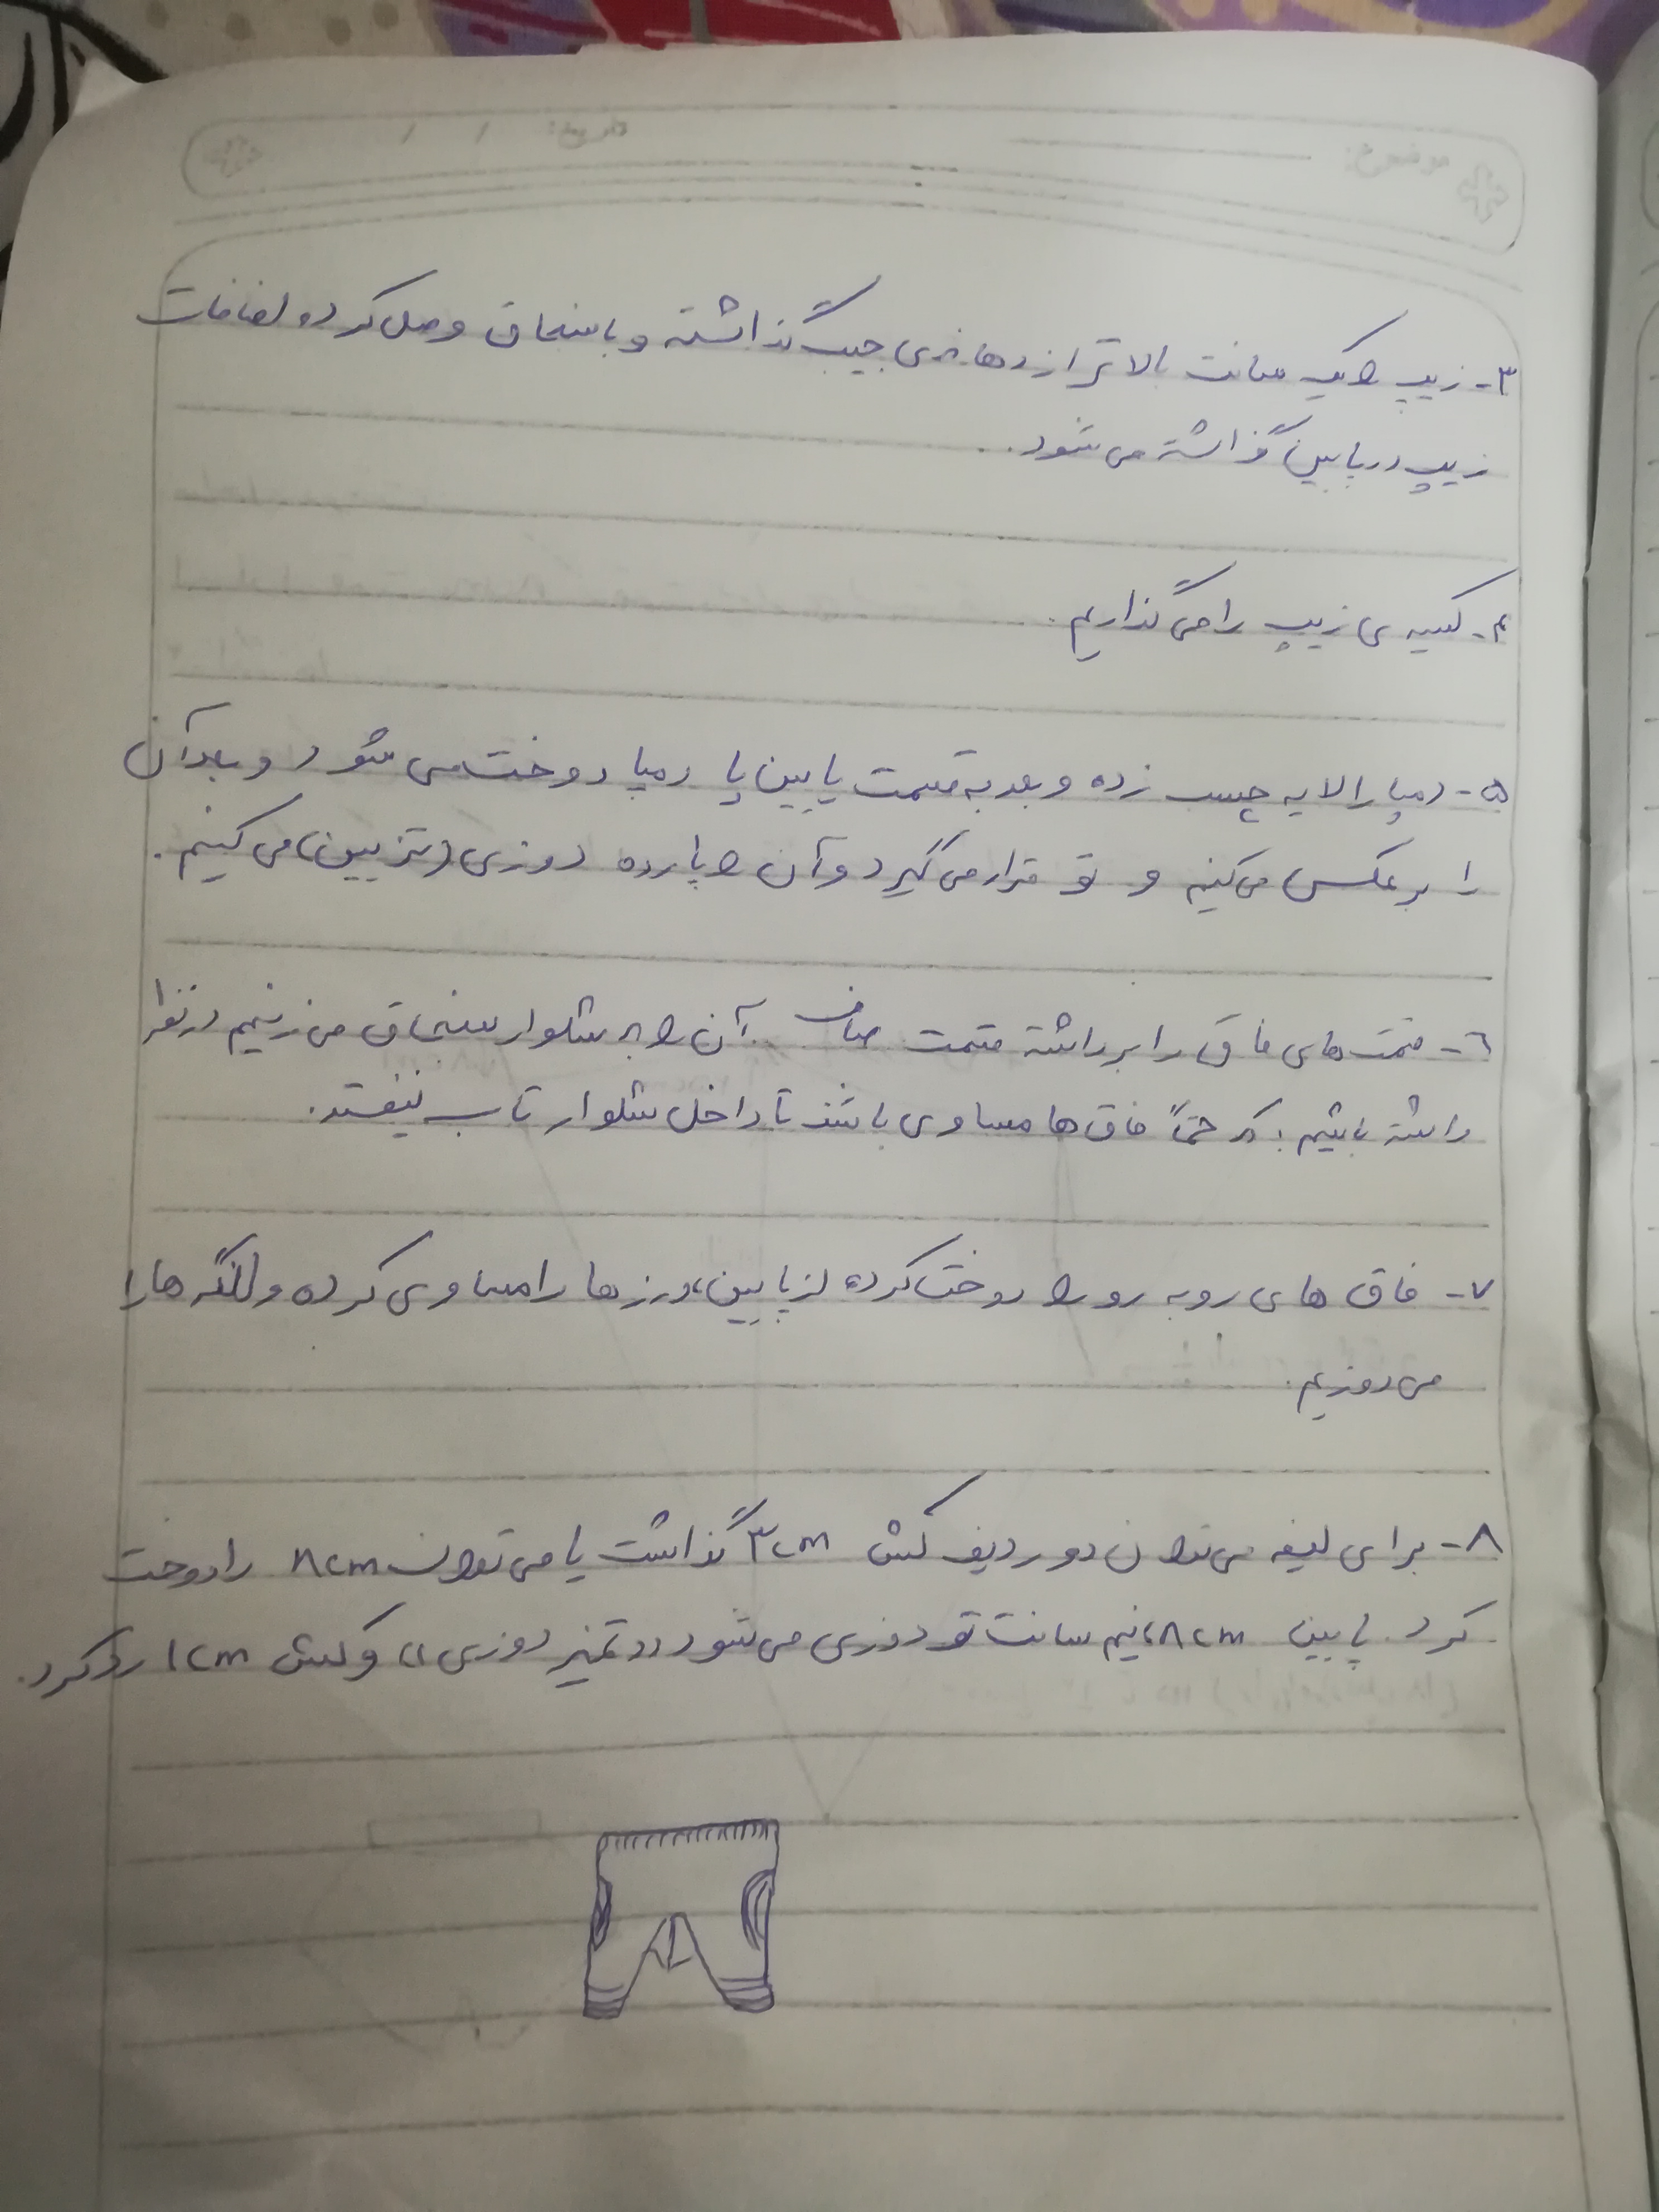 موضوع: تاریخ: / /
۳- زیپ را یک سانت بالاتر از دهانه‌ی جیب گذاشته و با سنجاق وصل کرده اضافات
زیپ در پایین گذاشته می‌شود.
۴- کیسه‌ی زیپ را می‌گذاریم.
۵- دمپا را لایه چسب زده و بعد به قسمت پایین پا دمپا دوخت می‌شود و بعد آن
را برعکس می‌کنیم و تو قرار می‌گیرد و آن را با رده دوزی (تزیین) می‌کنیم.
٦- قسمت‌های فاق را برداشته قسمت صاف آن را به شلوار سنجاق می‌زنیم در نظر
داشته باشیم؛ که حتماً فاق‌ها مساوی باشند تا داخل شلوار تاب نیفتد.
۷- فاق‌های روبه رو را دوخت کرده از پایین، درزها را مساوی کرده و لنگه‌ها را
می‌دوزیم.
۸- برای لیفه می‌توان دو ردیف کش ۳cm گذاشت یا می‌توان ۸cm را دوخت
کرد. پایین ۸cm، نیم سانت تو دوزی می‌شود تمیز دوزی و کش ۱cm رد کرد.